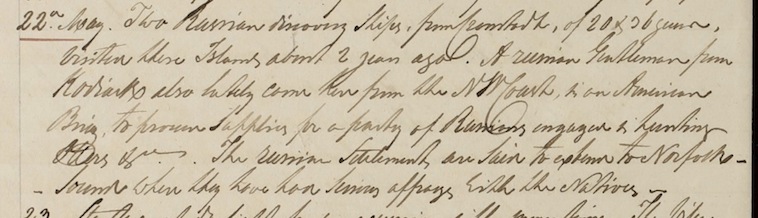 22d. May. Two Russian discovery Ships, from Cronstadt, of 20 & 36 guns,
visited these Islands about 2 years ago. A russian Gentleman from
Kodiack, also lately come here from the NW Coast, in an American
Brig, to procure Supplies for a party of Russians engaged in hunting
Otters &ca. The russian Settlements are said to extend to Norfolk-
-Sound where they have had serious affrays with the Natives -
23